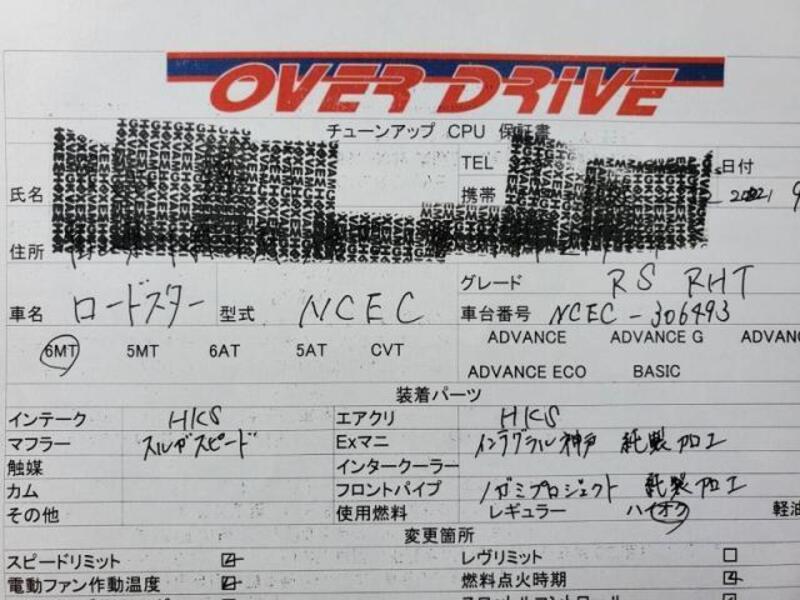 OVER DRIVE
チューンアップ CPU 保証書
氏名 TEL 日付
携帯
住所
車名 ロードスター 型式 NCEC グレード RS RHT
車台番号 NCEC-306493
6MT 5MT 6AT 5AT CVT ADVANCE ADVANCE G ADVAN
ADVANCE ECO BASIC
装着パーツ
インテーク HKS エアクリ HKS
マフラー スルガスピード Exマニ インテグラル神戸 純製加工
触媒 インタークーラー
カム フロントパイプ ノガミプロジェクト 純製加工
その他 使用燃料 レギュラー ハイオク 軽油
変更箇所
スピードリミット レヴリミット
電動ファン作動温度 燃料点火時期